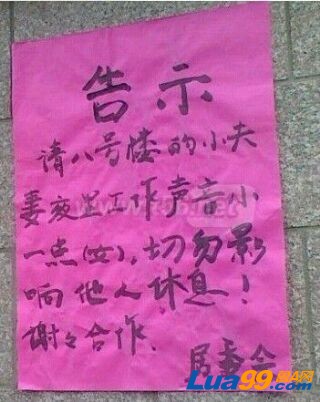 告示
请八号楼的小夫
妻夜里工作声音小
一点(女),切勿影
响他人休息!
谢々合作.
居委会
Lua99.com